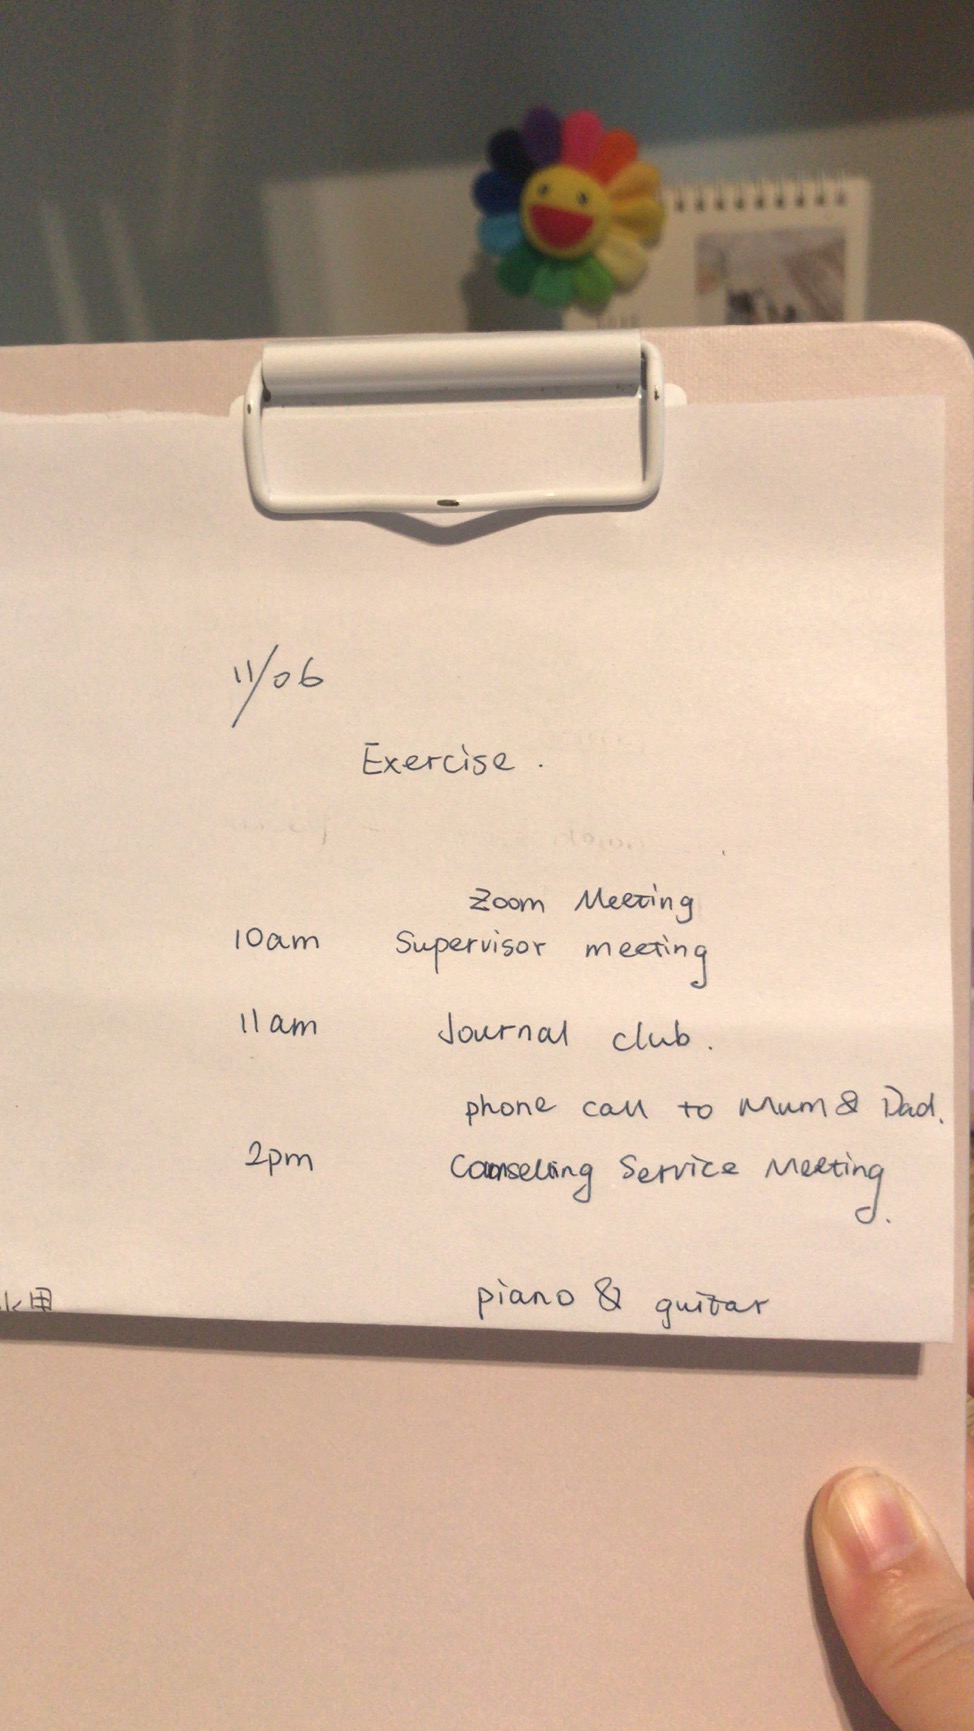 11/06
Exercise.
Zoom Meeting
10am Supervisor meeting
11am Journal club.
phone call to Mum & Dad.
2pm Counseling Service Meeting.
piano & guitar